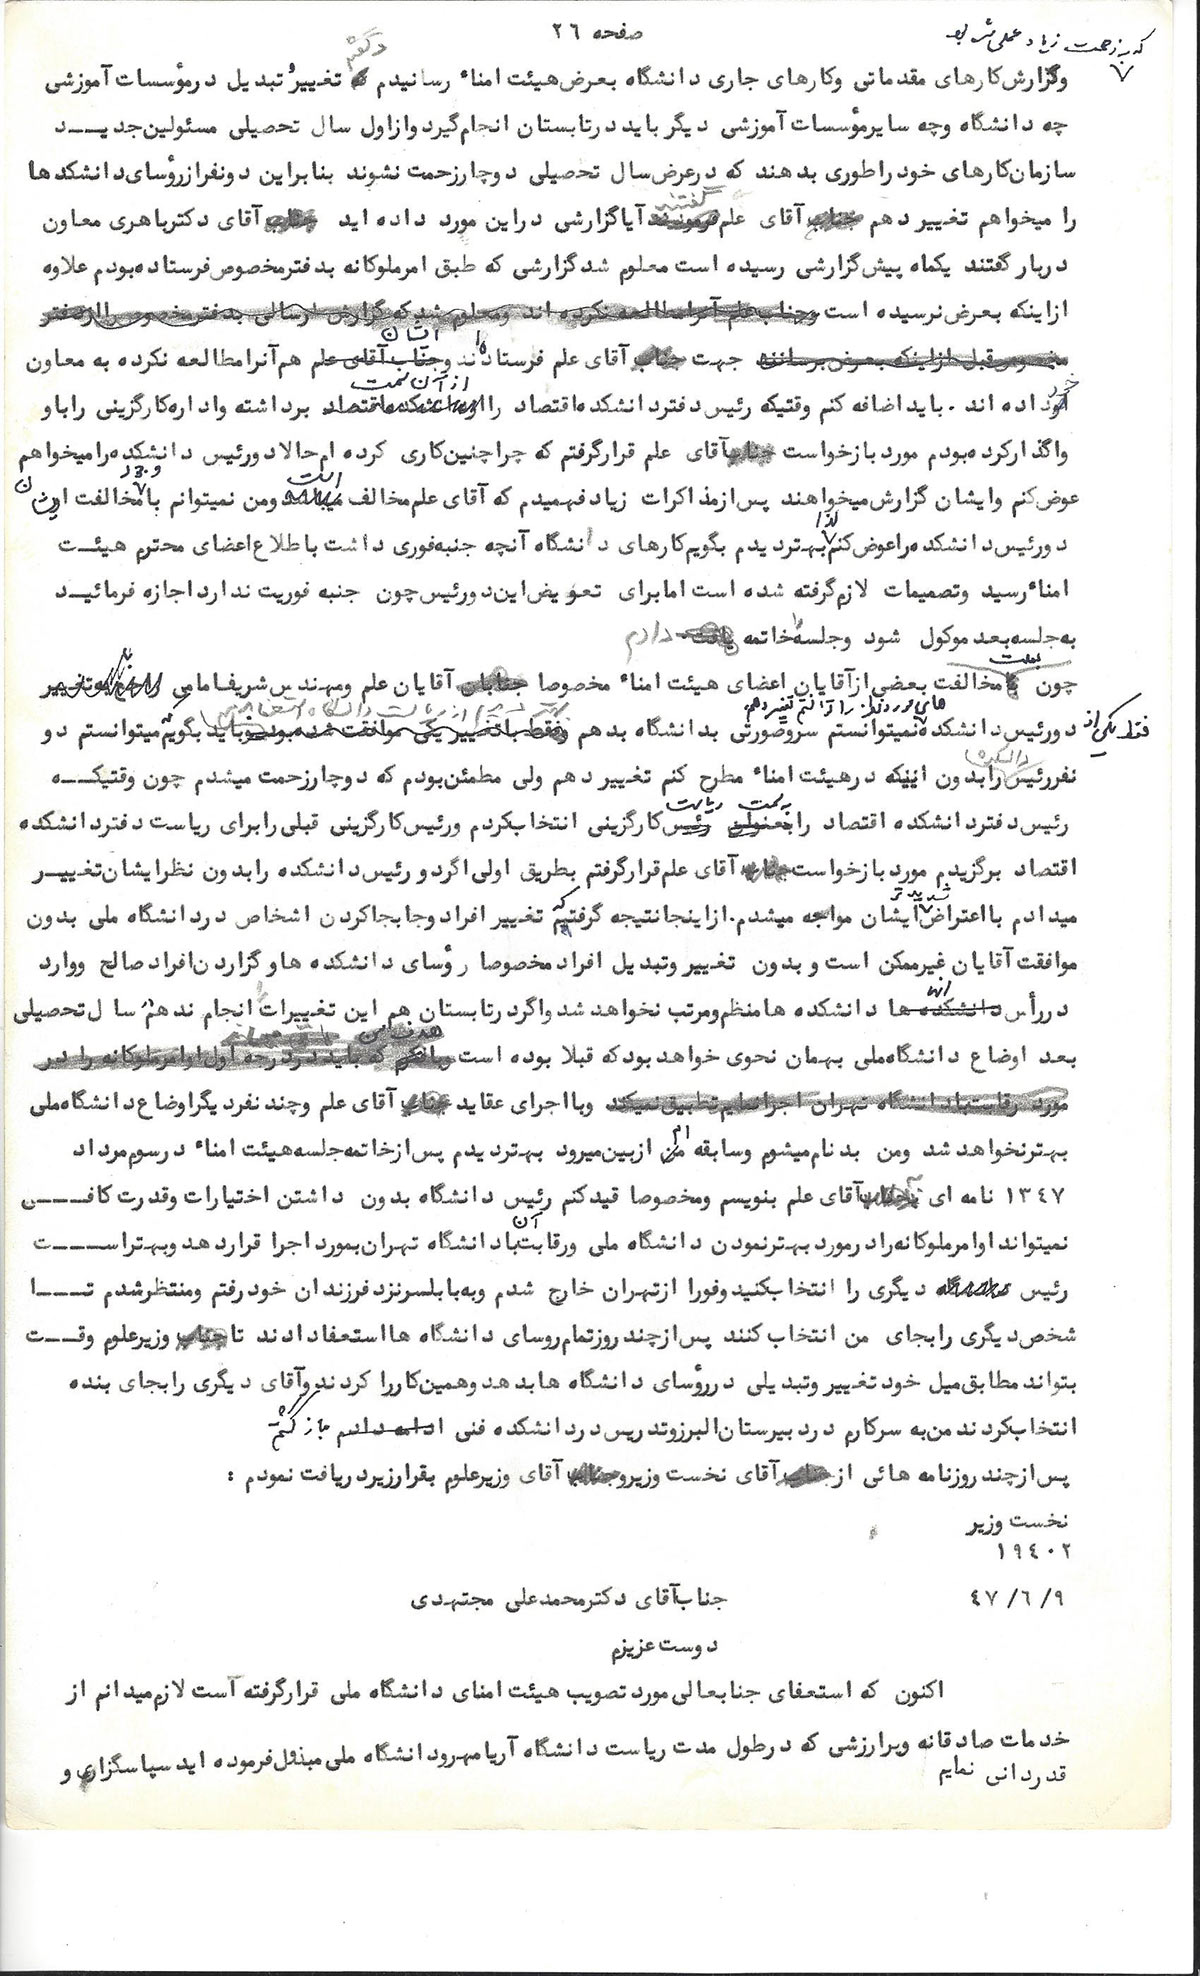 صفحه ٢٦
که به زحمت زیاد عملی شد بعد
وگزارش کارهای مقدماتی وکارهای جاری دانشگاه بعرض هیئت امناء رسانیدم و گفتم تغییر و تبدیل درمؤسسات آموزشی
چه دانشگاه وچه سایرمؤسسات آموزشی دیگر باید درتابستان انجام گیرد وازاول سال تحصیلی مسئولین جدیــد
سازمان کارهای خود راطوری بدهند که درعرض سال تحصیلی دوچارزحمت نشوند بنابراین دونفرازرؤسای دانشکدها
را میخواهم تغییر دهم جناب آقای علم فرمودند گفتند آیاگزارشی دراین مورد داده اید جناب آقای دکترباهری معاون
دربار گفتند یکماه پیش گزارشی رسیده است معلوم شد گزارشی که طبق امرملوکانه بدفترمخصوص فرستاده بودم علاوه
ازاینکه بعرض نرسیده است وجناب علم آنرامطالعه نکرده اند ومعلوم شد که گزارش ارسالی بدفترمخصوص راازدفتر
مخصوص قبل ازاینکه بعرض برسانند جهت جناب آقای علم فرستاده اند وجناب آقای علم ایشان هم آنرامطالعه نکرده به معاون
خود داده اند . باید اضافه کنم وقتیکه رئیس دفتردانشکده اقتصاد رااز دانشکده اقتصاد از آن سمت برداشته واداره کارگزینی راباو
واگذارکرده بودم مورد بازخواست جناب آقای علم قرارگرفتم که چراچنین کاری کرده ام حالا دورئیس دانشکده رامیخواهم
عوض کنم وایشان گزارش میخواهند پس ازمذاکرات زیاد فهمیدم که آقای علم مخالف میباشد است ومن نمیتوانم با وجود مخالفت ایشان
دورئیس دانشکده راعوض کنم لذا بهتردیدم بگویم کارهای دانشگاه آنچه جنبه فوری داشت باطلاع اعضای محترم هیئــت
امناء رسید وتصمیمات لازم گرفته شده است امابرای تعویض این دورئیس چون جنبه فوریت ندارد اجازه فرمائیــد
به جلسه بعد موکول شود وجلسه را خاتمه یافت دادم
چون با بعلت مخالفت بعضی ازآقایان اعضای هیئت امناء مخصوصا جنابان آقایان علم ومهندس شریف امامی به تغییر
فقط یکی از دورئیس دانشکده های مورد نظر را توانستم تغییر دهم نمیتوانستم سروصورتی بدانشگاه بدهم وفقط باتغییریکی موافقت شده بود وباید بگویم که میتوانستم دو
نفررئیس دانشکده رابدون اینکه درهیئت امناء مطرح کنم تغییر دهم ولی مطمئن بودم که دوچارزحمت میشدم چون وقتیکــه
رئیس دفتردانشکده اقتصاد رابعنوان رئیس به سمت ریاست کارگزینی انتخاب کردم ورئیس کارگزینی قبلی رابرای ریاست دفتردانشکده
اقتصاد برگزیدم مورد بازخواست جناب آقای علم قرارگرفتم بطریق اولی اگردو رئیس دانشکده رابدون نظرایشان تغییــر
میدادم بااعتراض شدیدتر ایشان مواجه میشدم. ازاینجانتیجه گرفتم که تغییر افراد وجابجاکردن اشخاص در دانشگاه ملی بدون
موافقت آقایان غیرممکن است و بدون تغییر وتبدیل افراد مخصوصا رؤسای دانشکده ها وگزاردن افراد صالح ووارد
دررأس دانشکده ها آنها دانشکده هامنظم ومرتب نخواهد شد واگردرتابستان هم این تغییرات را انجام ندهم سال تحصیلی
بعد اوضاع دانشگاه ملی بهمان نحوی خواهد بود که قبلا بوده است که باید دردرجه اول اوامرملوکانه را در
مورد رقابت بادانشگاه تهران اجرانمایم تطبیق نمیکند وبااجرای عقاید جناب آقای علم وچند نفردیگراوضاع دانشگاه ملی
بهترنخواهد شد ومن بدنام میشوم وسابقه ام من ازبین میرود بهتردیدم پس ازخاتمه جلسه هیئت امناء درسوم مرداد
١٣٤٧ نامه ای به جناب آقای علم بنویسم ومخصوصا قید کنم رئیس دانشگاه بدون داشتن اختیارات وقدرت کافــی
نمیتواند اوامرملوکانه رادرمورد بهترنمودن دانشگاه ملی ورقابت آن بادانشگاه تهران بمورد اجرا قراردهد وبهتراســت
رئیس دیگری را انتخاب کنید وفورا ازتهران خارج شدم وبه بابلسرنزد فرزندان خود رفتم ومنتظرشدم تــا
شخص دیگری رابجای من انتخاب کنند پس ازچند روزتمام روسای دانشگاه هااستعفا دادند تاجناب وزیرعلوم وقــت
بتواند مطابق میل خود تغییر وتبدیلی دررؤسای دانشگاه هابدهد وهمین کاررا کردند وآقای دیگری رابجای بنده
انتخاب کردند من به سرکارم دردبیرستان البرزوتدریس دردانشکده فنی ادامه دادم بازگشتم
پس ازچند روزنامه هائی ازجناب آقای نخست وزیروجناب آقای وزیرعلوم بقرارزیردریافت نمودم :
نخست وزیر
١٩٤٠٢
٤٧/٦/٩
جناب آقای دکترمحمدعلی مجتهدی
دوست عزیزم
اکنون که استعفای جنابعالی مورد تصویب هیئت امنای دانشگاه ملی قرارگرفته است لازم میدانم از
خدمات صادقانه وپرارزشی که درطول مدت ریاست دانشگاه آریامهرودانشگاه ملی مبذول فرموده اید سپاسگزاری و
قدردانی نمایم